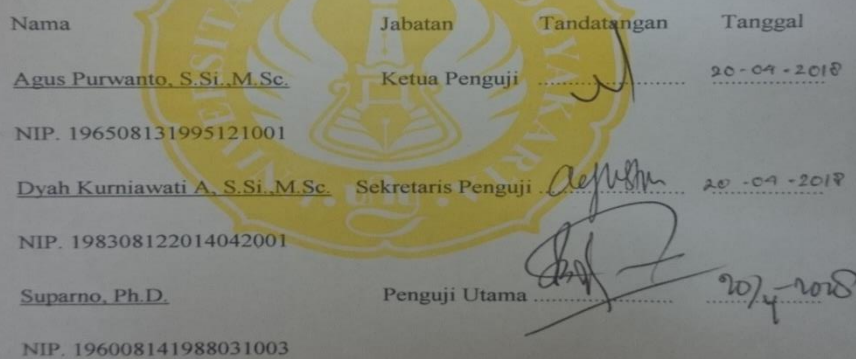 Nama Jabatan Tandatangan Tanggal
Agus Purwanto, S.Si.,M.Sc. Ketua Penguji .................. 20-04-2018
NIP. 196508131995121001
Dyah Kurniawati A, S.Si.,M.Sc. Sekretaris Penguji .................. 20-04-2018
NIP. 198308122014042001
Suparno, Ph.D. Penguji Utama .................. 20/4-2018
NIP. 196008141988031003